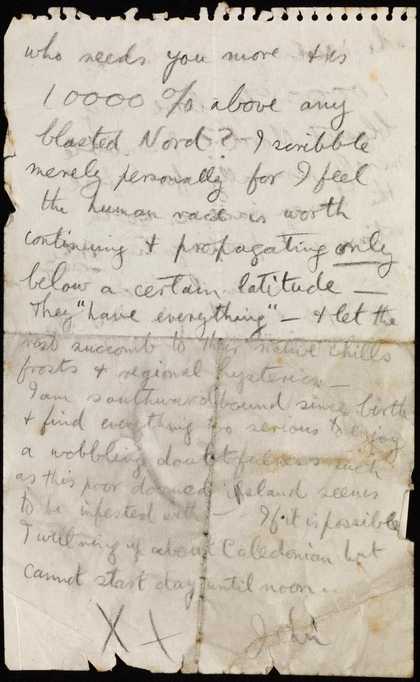 who needs you more & is
10000 % above any
blasted Nord? I scribble
merely personally for I feel
the human race is worth
continuing & propagating only
below a certain latitude —
They "have everything" — & let the
rest succomb to their native chills
frosts & regional hysterics —
I am southward bound since birth
& find everything too serious to enjoy
a wobbling doubtfulness such
as this poor doomed island seems
to be infested with — If it is possible
I will ring up about Caledonian but
cannot start day until noon ..
X X John